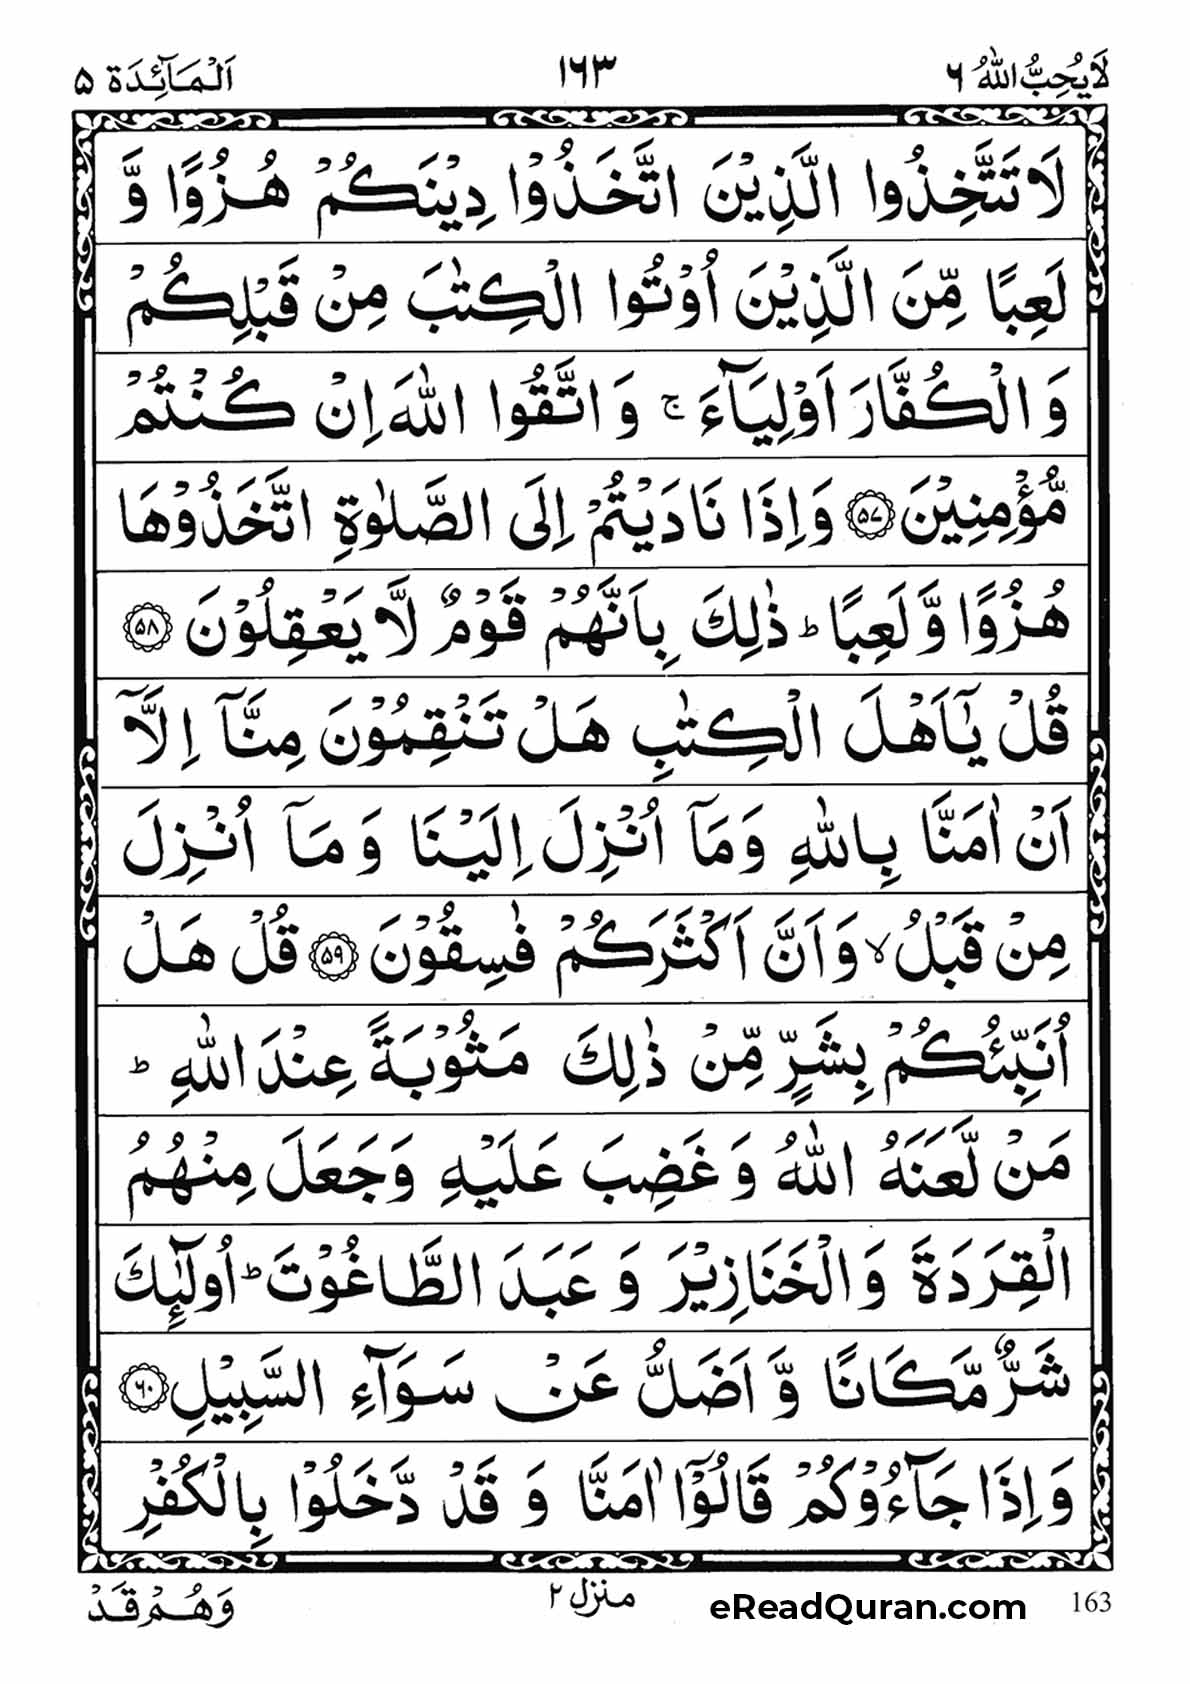 لَا يُحِبُّ اللّٰهُ ٦ ١٦٣ اَلْمَآئِدَة ٥
لَا تَتَّخِذُوا الَّذِيْنَ اتَّخَذُوْا دِيْنَكُمْ هُزُوًا وَّ
لَعِبًا مِّنَ الَّذِيْنَ اُوْتُوا الْكِتٰبَ مِنْ قَبْلِكُمْ
وَالْكُفَّارَ اَوْلِيَآءَ ۚ وَاتَّقُوا اللّٰهَ اِنْ كُنْتُمْ
مُّؤْمِنِيْنَ ﴿۵۷﴾ وَاِذَا نَادَيْتُمْ اِلَى الصَّلٰوةِ اتَّخَذُوْهَا
هُزُوًا وَّلَعِبًا ؕ ذٰلِكَ بِاَنَّهُمْ قَوْمٌ لَّا يَعْقِلُوْنَ ﴿۵۸﴾
قُلْ يٰۤاَهْلَ الْكِتٰبِ هَلْ تَنْقِمُوْنَ مِنَّاۤ اِلَّاۤ
اَنْ اٰمَنَّا بِاللّٰهِ وَمَاۤ اُنْزِلَ اِلَيْنَا وَمَاۤ اُنْزِلَ
مِنْ قَبْلُ ۙ وَاَنَّ اَكْثَرَكُمْ فٰسِقُوْنَ ﴿۵۹﴾ قُلْ هَلْ
اُنَبِّئُكُمْ بِشَرٍّ مِّنْ ذٰلِكَ مَثُوْبَةً عِنْدَ اللّٰهِ ؕ
مَنْ لَّعَنَهُ اللّٰهُ وَغَضِبَ عَلَيْهِ وَجَعَلَ مِنْهُمُ
الْقِرَدَةَ وَالْخَنَازِيْرَ وَعَبَدَ الطَّاغُوْتَ ؕ اُولٰٓئِكَ
شَرٌّ مَّكَانًا وَّاَضَلُّ عَنْ سَوَآءِ السَّبِيْلِ ﴿۶۰﴾
وَاِذَا جَآءُوْكُمْ قَالُوْۤا اٰمَنَّا وَقَدْ دَّخَلُوْا بِالْكُفْرِ
163 eReadQuran.com منزل ٢ وَهُمْ قَدْ